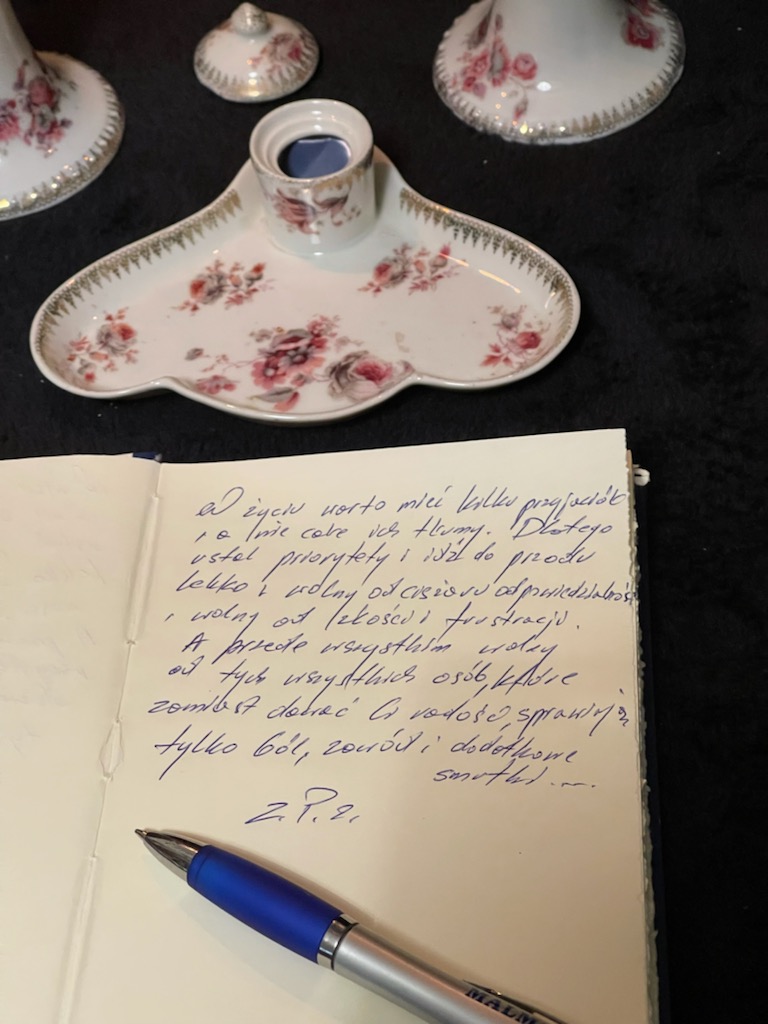 W życiu warto mieć kilku przyjaciół
, a nie całe ich tłumy. Dlatego
ustal priorytety i idź do przodu
lekko i wolny od ciężaru odpowiedzialności
, wolny od i frustracji.
A przede wszystkim wolny
od tych wszystkich osób, które
zamiast dawać Ci radość, sprawiają
tylko ból, zawód i dodatkowe
smutki....
Z.P.Z.